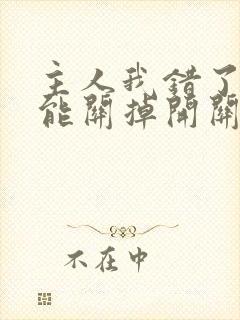 主人我错了
能關掉開關
不在中